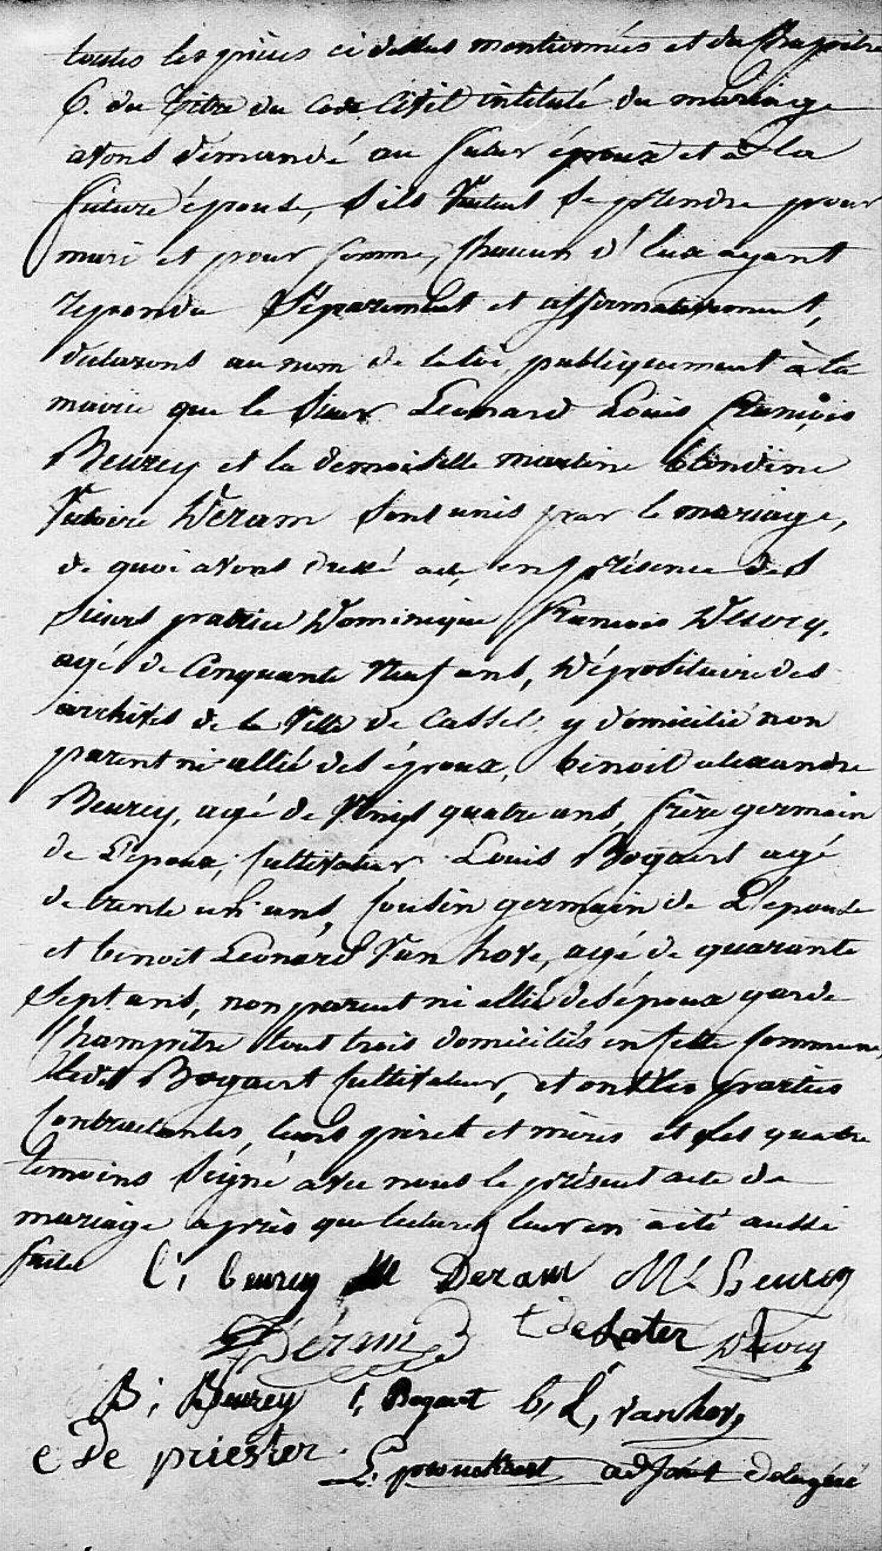 toutes les pièces ci dessus mentionnés et du Chapitre
6. du Titre du Code Civil intitulé du mariage
avons demandé au futur époux et à la
future épouse, s'ils veulent se prendre pour
mari et pour femme, chacun d'eux ayant
repondu séparement et affirmativement,
declarons au nom de la loi publiquement à la
mairie que le sieur Leonard Louis François
Beurey et la demoiselle martine blondine
Victoire Deram sont unis par le mariage,
de quoi avons dressé acte, en présence des
sieurs Dominique François
agé de Cinquante neuf ans, dépositaire des
archives de la Ville de Cassel, y domicilié non
parent ni allié des époux, benoit alexandre
Beurey, agé de vingt quatre ans, frère germain
de L'epoux, cultivateur Louis Bogaert agé
de trente un ans, cousin germain de L'épouse
et benoit Leonard Van hove, agé de quarante
sept ans, non parent ni allié des époux garde
Champêtre tout trois domiciliés en cette commune,
Bogaert cultivateur, et ont les parties
contractantes, leurs pères et mères et les quatre
temoins signé avec nous le présent acte de
mariage après que lecture leur en a été aussi
faite
beurey Deram Beurey
Deram de sater
B. Beurey Bogaert b, L, vanhove
e de priester.
adjoint delegué